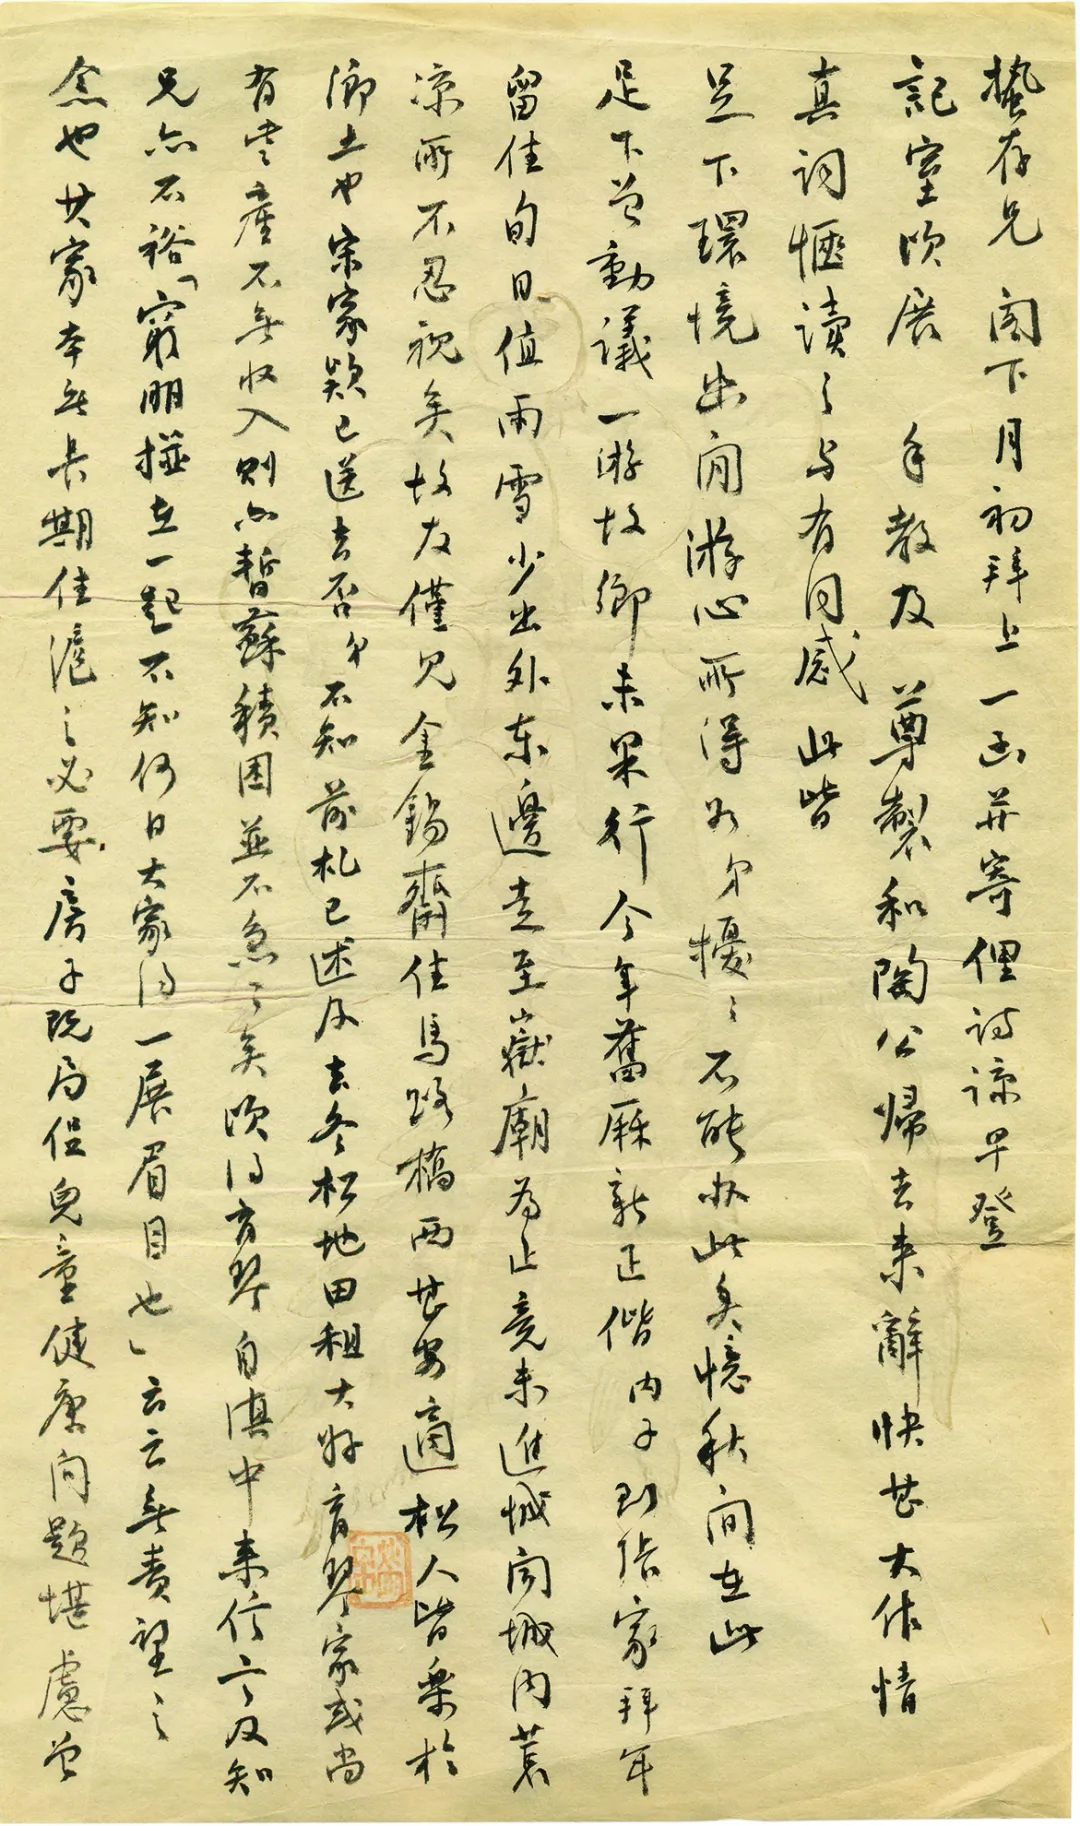 蟄存兄 閣下月初拜上一函并寄俚詩諒早登
記室頃展 手教及 尊製和陶公歸去来辭快甚大作情
真詞愜讀之与有同感此皆
足下環境幽閒游心所得若弟擾擾不能办此矣憶秋间在此
足下曾動議一游故鄉未果行今年舊厤新正偕内子到岳家拜年
留住旬日值雨雪少出外东邊走至嶽廟為止竟未進城闻城内荒
凉所不忍視矣故友僅見金錫齋住馬路橋西甚安適松人皆樂於
鄉土也宗家款已送去否弟不知前札已述及去冬松地田租大好育琴家或尚
有产不無收入則必暫蘇積困並不急急矣頃得育琴自滇中来信言及知
兄亦不裕「窮朋擋在一起不知何日大家得一展眉目也」云云無責望之
念也其家本無長期住滬之必要房子既局促兒童健康问题堪慮曾